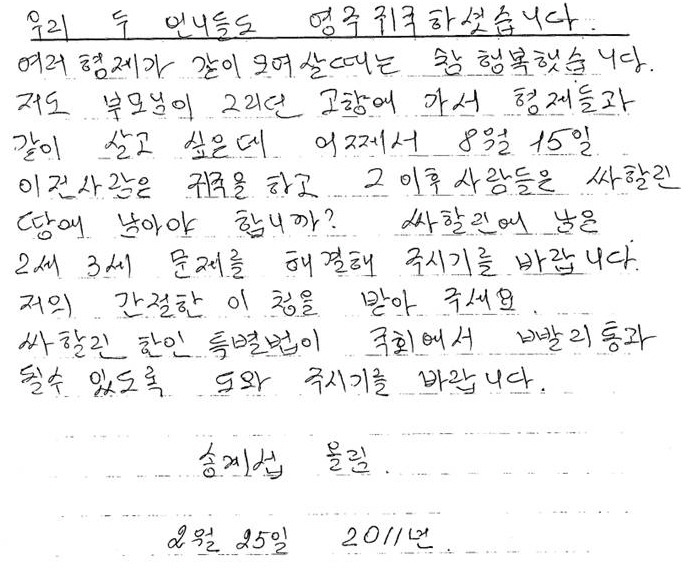 우리 두 언니들도 영주귀국하셧습니다.
여러 형제가 같이 모여 살때는 참 행복햇습니다.
저도 부모님이 그리던 고향에 가서 형제들과
같이 살고 싶은데 어찌서 8월 15일
이전사람은 귀국을 하고 그 이후 사람들은 싸할린
땅에 남아야 합니까? 싸할린에 남은
2세 3세 문제를 해결해 주시기를 바랍니다.
저의 간절한 이 청을 받아 주세요.
싸할린 한인 특별법이 국회에서 빨리 통과
될수 있도록 도와 주시기를 바랍니다.
송계섭 올림.
2월 25일 2011년.